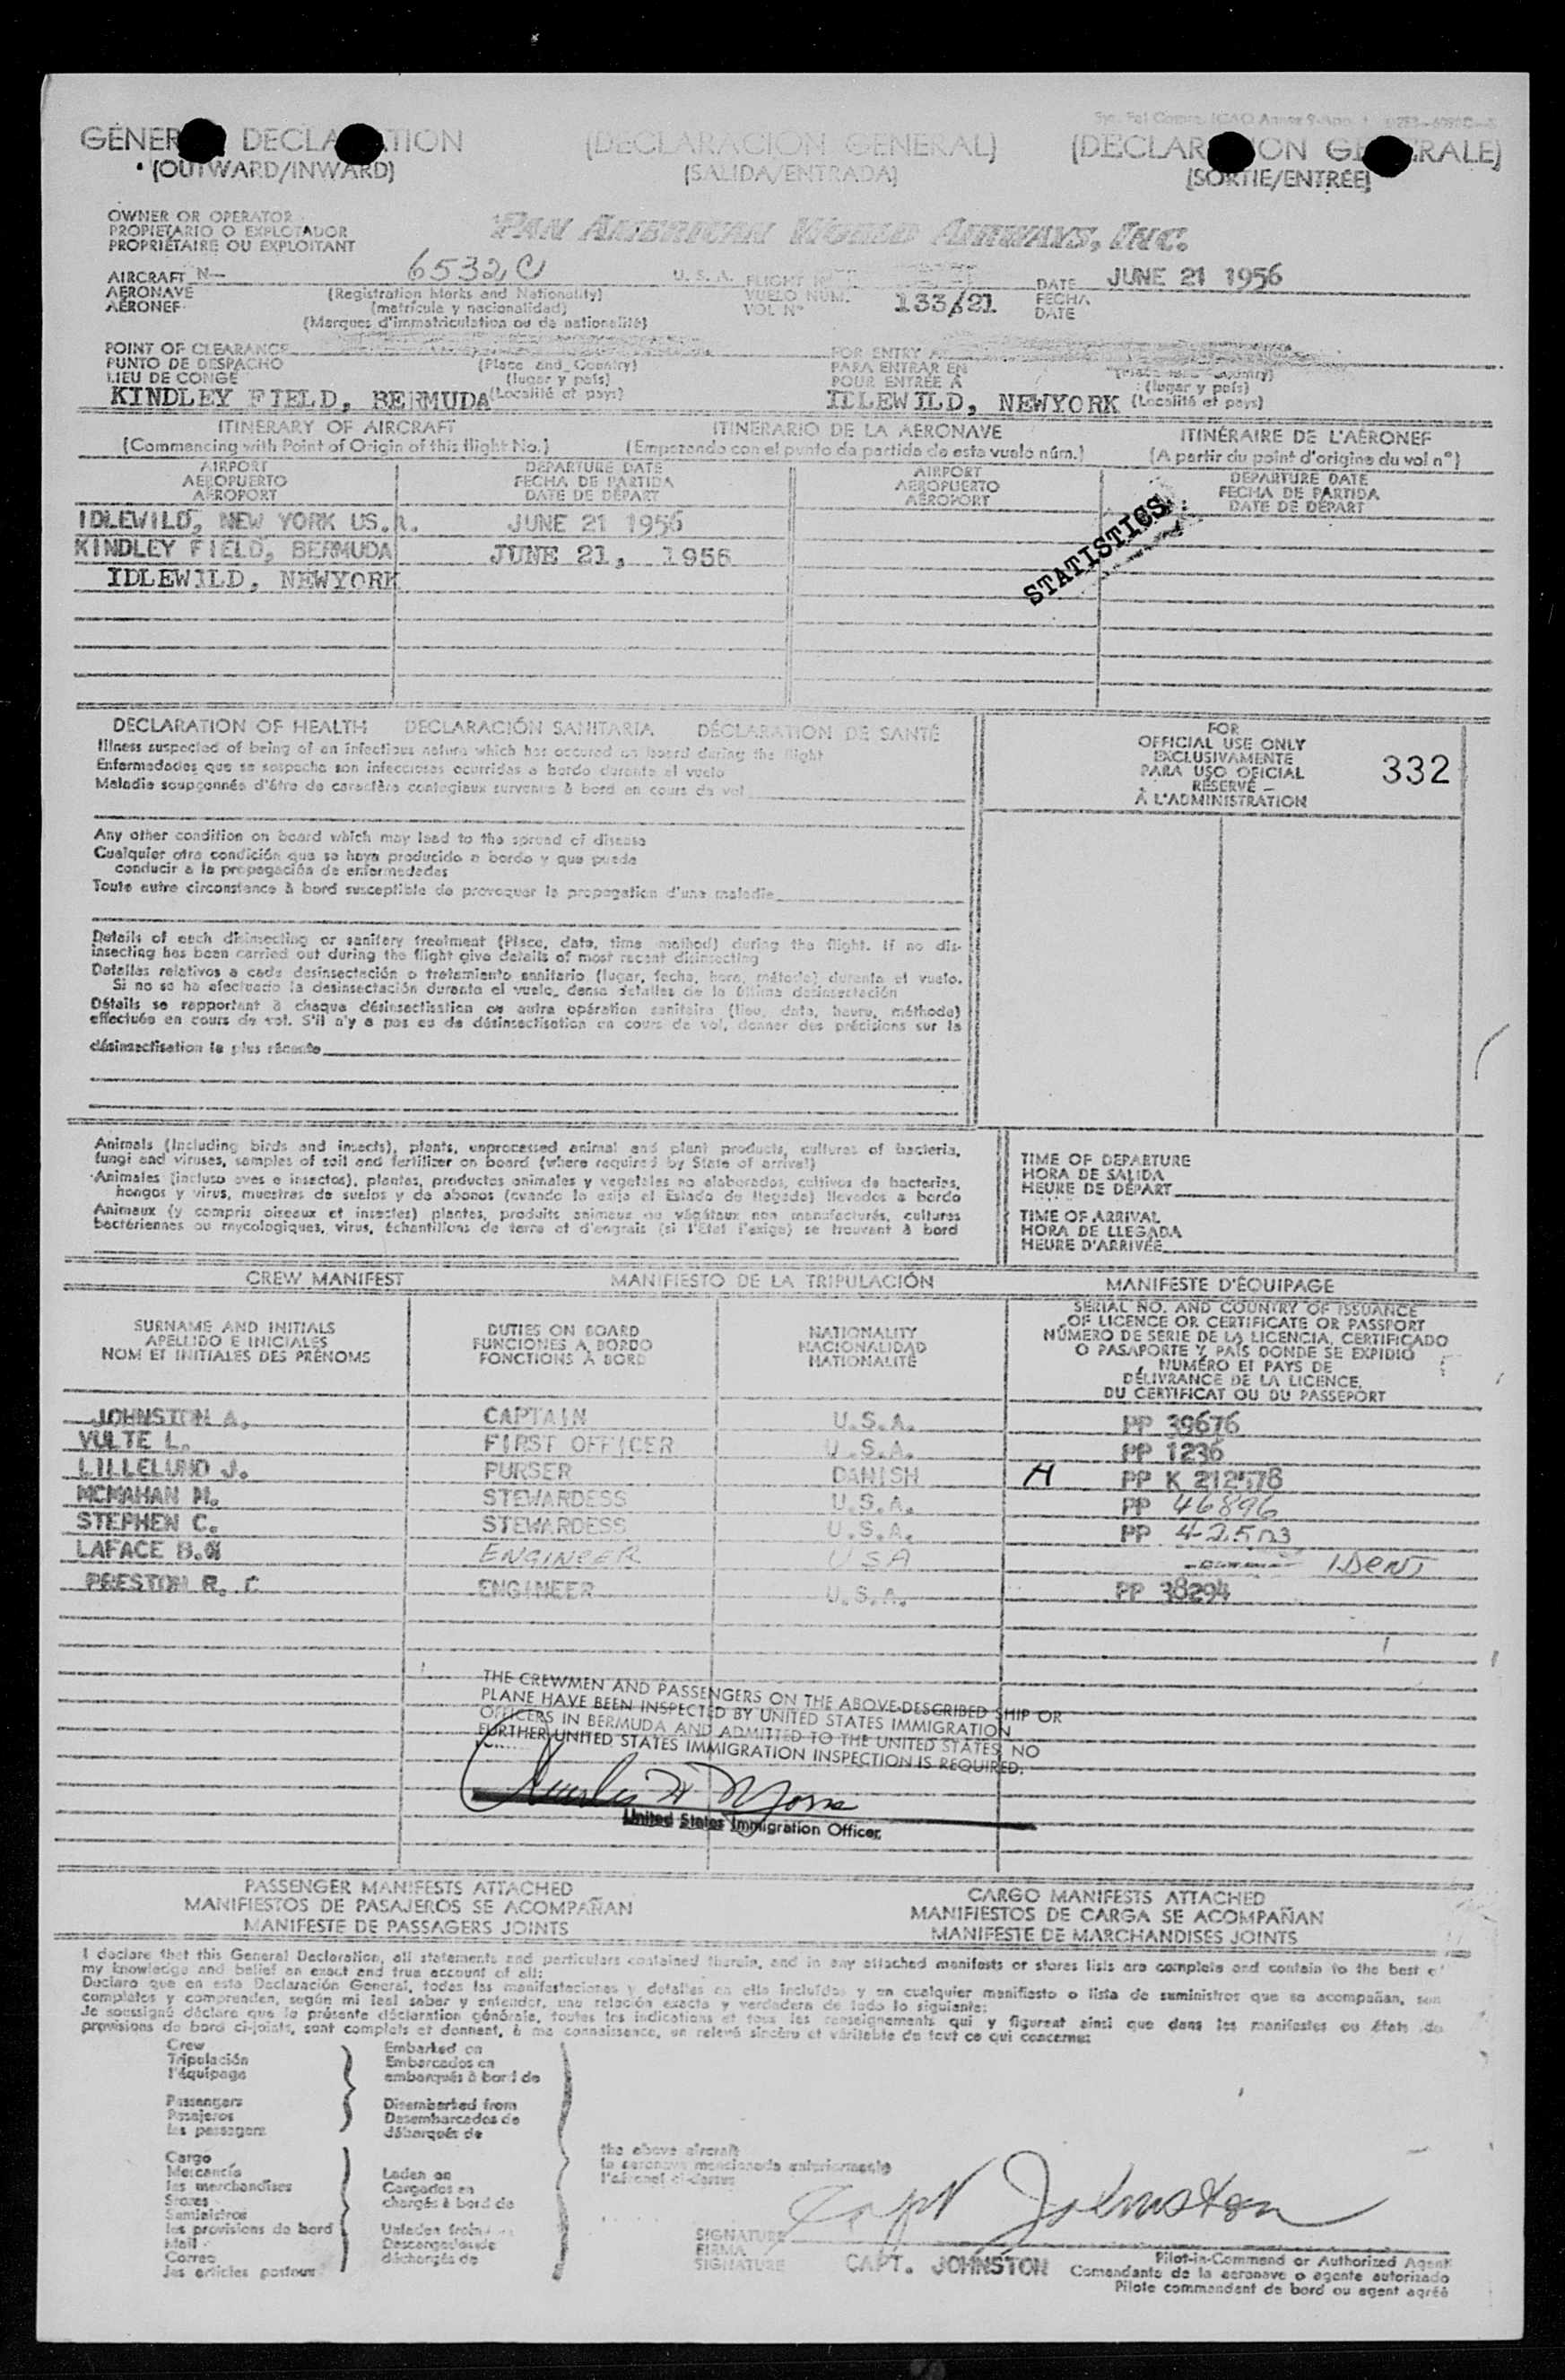 GENER DECLA TION
(OUTWARD/INWARD)
(DECLARACION GENERAL)
(SALIDA/ENTRADA)
(DECLAR ION GE RALE)
(SORTIE/ENTRÉE)
OWNER OR OPERATOR
PROPIETARIO O EXPLOTADOR
PROPRIÉTAIRE OU EXPLOITANT
PAN AMERICAN WORLD AIRWAYS, INC.
AIRCRAFT N— 6532C U. S. A.
AERONAVE
AÉRONEF
(Registration Marks and Nationality)
(matrícula y nacionalidad)
(Marques d'immatriculation ou de nationalité)
FLIGHT N
VUELO NUM.
VOL N°
133/21
DATE JUNE 21 1956
FECHA
DATE
POINT OF CLEARANCE
PUNTO DE DESPACHO
LIEU DE CONGE
(Place and Country)
(lugar y país)
KINDLEY FIELD, BERMUDA (Localité et pays)
FOR ENTRY AT
PARA ENTRAR EN
POUR ENTRÉE À
(lugar y país)
IDLEWILD, NEWYORK (Localité et pays)
ITINERARY OF AIRCRAFT
(Commencing with Point of Origin of this flight No.)
ITINERARIO DE LA AERONAVE
(Empezando con el punto de partida de este vuelo núm.)
ITINÉRAIRE DE L'AÉRONEF
(A partir du point d'origine du vol n°)
AIRPORT
AEROPUERTO
AÉROPORT
DEPARTURE DATE
FECHA DE PARTIDA
DATE DE DÉPART
AIRPORT
AEROPUERTO
AÉROPORT
DEPARTURE DATE
FECHA DE PARTIDA
DATE DE DÉPART
IDLEWILD, NEW YORK US.A. JUNE 21 1956
KINDLEY FIELD, BERMUDA JUNE 21, 1956
IDLEWILD, NEWYORK
STATISTICS
DECLARATION OF HEALTH DECLARACIÓN SANITARIA DÉCLARATION DE SANTÉ
Illness suspected of being of an infectious nature which has occured on board during the flight
Enfermedades que se sospecha son infecciosas ocurridas a bordo durante el vuelo
Maladie soupçonnée d'être de caractère contagieux survenue à bord en cours de vol
FOR
OFFICIAL USE ONLY
EXCLUSIVAMENTE
PARA USO OFICIAL
RÉSERVÉ
À L'ADMINISTRATION
332
Any other condition on board which may lead to the spread of disease
Cualquier otra condición que se haya producido a bordo y que puede
conducir a la propagación de enfermedades
Toute autre circonstance à bord susceptible de provoquer la propagation d'une maladie
Details of each disinsecting or sanitary treatment (Place, date, time method) during the flight. If no dis-
insecting has been carried out during the flight give details of most recent disinsecting
Detalles relativos a cada desinsectación o tratamiento sanitario (lugar, fecha, hora, método) durante el vuelo.
Si no se ha efectuado la desinsectación durante el vuelo, dense detalles de la última desinsectación
Détails se rapportant à chaque désinsectisation ou autre opération sanitaire (lieu, date, heure, méthode)
effectuée en cours de vol. S'il n'y a pas eu de désinsectisation en cours de vol, donner des précisions sur la
désinsectisation la plus récente
Animals (Including birds and insects), plants, unprocessed animal and plant products, cultures of bacteria,
fungi and viruses, samples of soil and fertilizer on board (where required by State of arrival)
Animales (incluso aves e insectos), plantas, productos animales y vegetales no elaborados, cultivos de bacterias,
hongos y virus, muestras de suelos y de abonos (cuando lo exija el Estado de llegada) llevados a bordo
Animaux (y compris oiseaux et insectes) plantes, produits animaux ou végétaux non manufacturés, cultures
bactériennes ou mycologiques, virus, échantillons de terre et d'engrais (si l'Etat l'exige) se trouvant à bord
TIME OF DEPARTURE
HORA DE SALIDA
HEURE DE DÉPART
TIME OF ARRIVAL
HORA DE LLEGADA
HEURE D'ARRIVÉE
CREW MANIFEST MANIFIESTO DE LA TRIPULACIÓN MANIFESTE D'ÉQUIPAGE
SURNAME AND INITIALS
APELLIDO E INICIALES
NOM ET INITIALES DES PRÉNOMS
DUTIES ON BOARD
FUNCIONES A BORDO
FONCTIONS À BORD
NATIONALITY
NACIONALIDAD
NATIONALITÉ
SERIAL NO. AND COUNTRY OF ISSUANCE
OF LICENCE OR CERTIFICATE OR PASSPORT
NÚMERO DE SERIE DE LA LICENCIA, CERTIFICADO
O PASAPORTE Y PAÍS DONDE SE EXPIDIÓ
NUMÉRO ET PAYS DE
DÉLIVRANCE DE LA LICENCE,
DU CERTIFICAT OU DU PASSEPORT
JOHNSTON A. CAPTAIN U.S.A. PP 39676
VULTE L. FIRST OFFICER U.S.A. PP 1236
LILLELUND J. PURSER DANISH H PP K 212578
MCMAHAN M. STEWARDESS U.S.A. PP 46896
STEPHEN C. STEWARDESS U.S.A. PP 42503
LAFACE B. ENGINEER USA IDENT
PRESTON R. C ENGINEER U.S.A. PP 38294
THE CREWMEN AND PASSENGERS ON THE ABOVE-DESCRIBED SHIP OR
PLANE HAVE BEEN INSPECTED BY UNITED STATES IMMIGRATION
OFFICERS IN BERMUDA AND ADMITTED TO THE UNITED STATES, NO
FURTHER UNITED STATES IMMIGRATION INSPECTION IS REQUIRED.
United States Immigration Officer
PASSENGER MANIFESTS ATTACHED
MANIFIESTOS DE PASAJEROS SE ACOMPAÑAN
MANIFESTE DE PASSAGERS JOINTS
CARGO MANIFESTS ATTACHED
MANIFIESTOS DE CARGA SE ACOMPAÑAN
MANIFESTE DE MARCHANDISES JOINTS
I declare that this General Declaration, all statements and particulars contained therein, and in any attached manifests or stores lists are complete and contain to the best of
my knowledge and belief an exact and true account of all:
Declaro que en esta Declaración General, todas las manifestaciones y detalles en ella incluídos y en cualquier manifiesto o lista de suministros que se acompañan, son
completos y comprenden, según mi leal saber y entender, una relación exacta y verdadera de todo lo siguiente:
Je soussigné déclare que la présente déclaration générale, toutes les indications et tous les renseignements qui y figurent ainsi que dans les manifestes ou états de
provisions de bord ci-joints, sont complets et donnent, à ma connaissance, un relevé sincère et véritable de tout ce qui concerne:
Crew
Tripulación
l'équipage
Passengers
Pasajeros
les passagers
Cargo
Mercancía
les merchandises
Stores
Suministros
les provisions de bord
Mail
Correo
les articles postaux
Embarked on
Embarcados en
embarqués à bord de
Disembarked from
Desembarcados de
débarqués de
Laden on
Cargados en
chargés à bord de
Unladen from
Descargados de
déchargés de
the above aircraft
la aeronave mencionada anteriormente
l'aéronef ci-dessus
Capt Johnston
SIGNATURE
FIRMA
SIGNATURE
CAPT. JOHNSTON
Pilot-in-Command or Authorized Agent
Comandante de la aeronave o agente autorizado
Pilote commandant de bord ou agent agréé